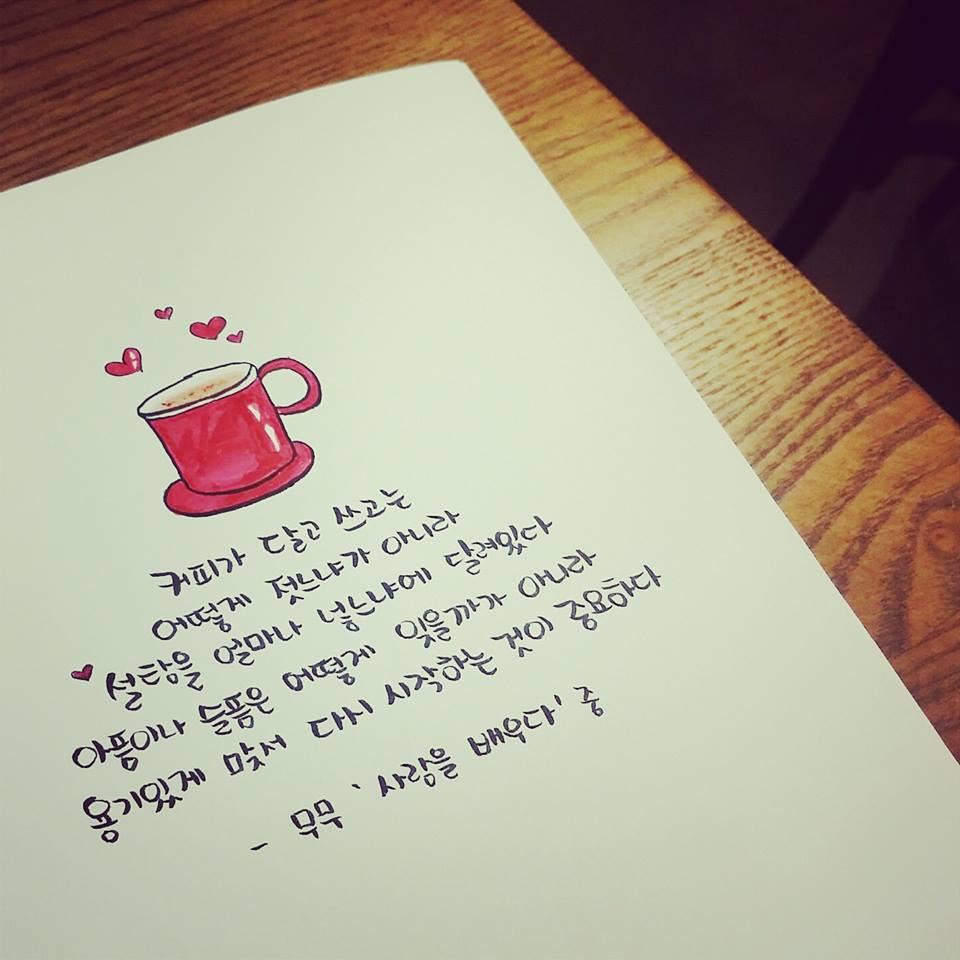 커피가 달고 쓰고는
어떻게 젓느냐가 아니라
설탕을 얼마나 넣느냐에 달려있다
아픔이나 슬픔은 어떻게 잊을까가 아니라
용기있게 맞서 다시 시작하는 것이 중요하다
- 무무 '사랑을 배우다' 중